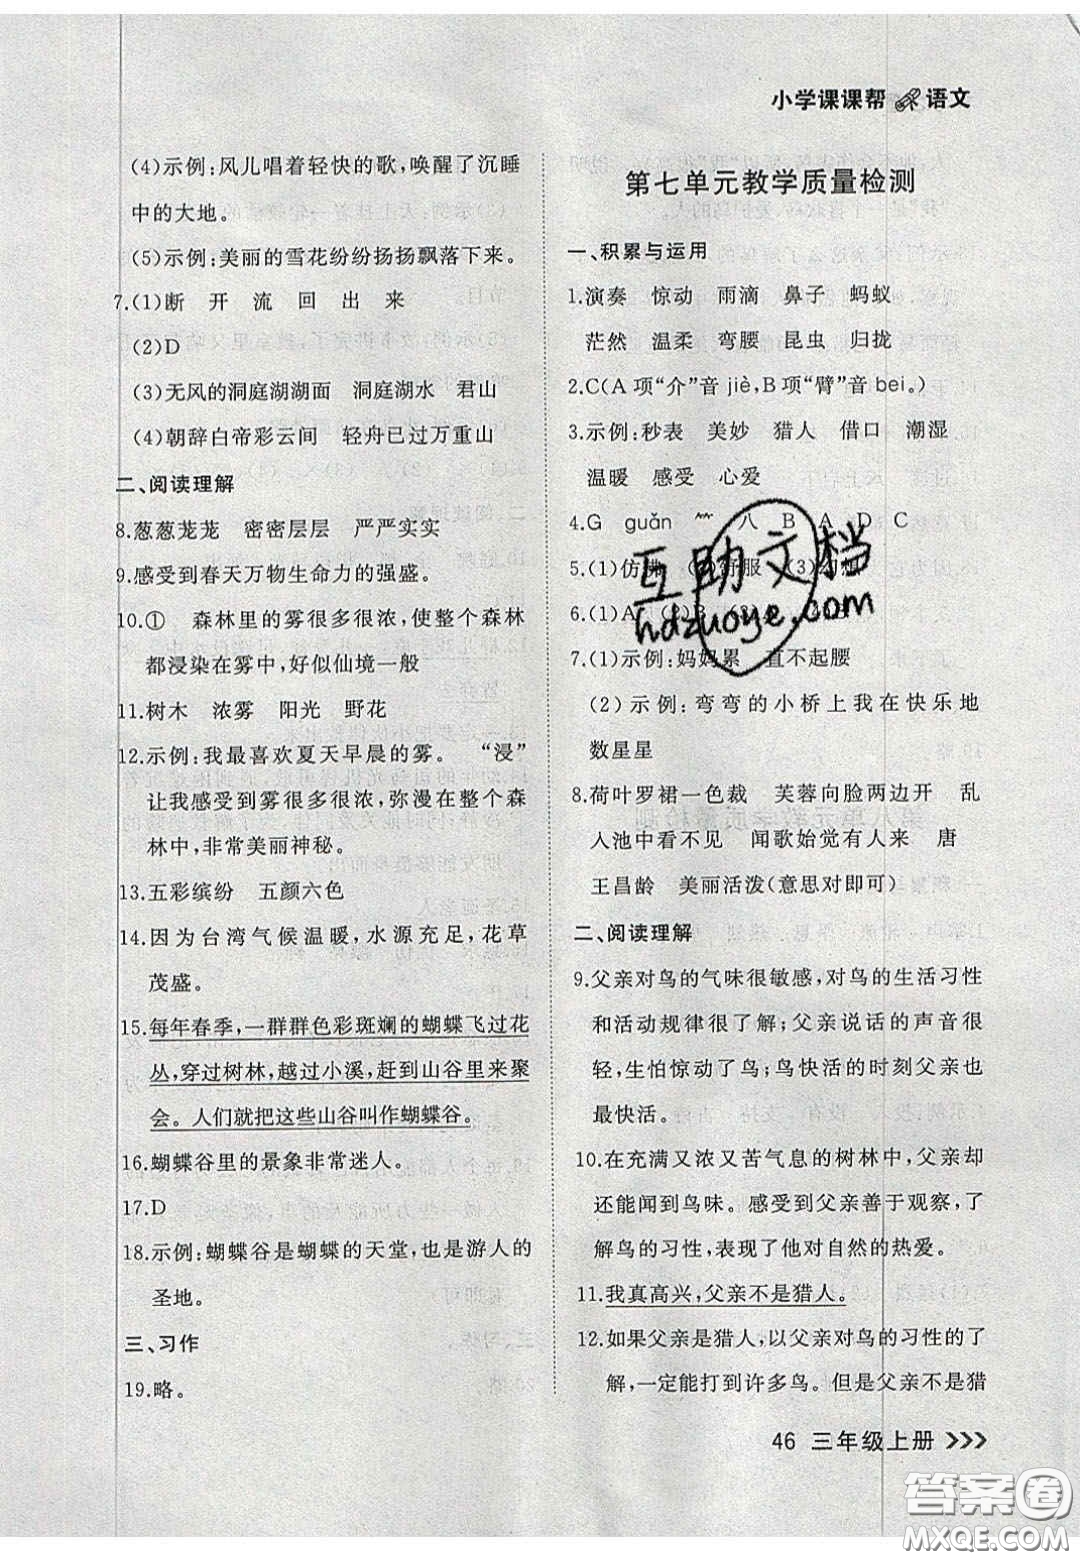 小学课课帮 语文
(4)示例:风儿唱着轻快的歌,唤醒了沉睡
中的大地。
(5)示例:美丽的雪花纷纷扬扬飘落下来。
7.(1)断 开 流 回 出 来
(2)D
(3)无风的洞庭湖湖面 洞庭湖水 君山
(4)朝辞白帝彩云间 轻舟已过万重山
二、阅读理解
8.葱葱茏茏 密密层层 严严实实
9.感受到春天万物生命力的强盛。
10.① 森林里的雾很多很浓,使整个森林
都浸染在雾中,好似仙境一般
11.树木 浓雾 阳光 野花
12.示例:我最喜欢夏天早晨的雾。 “浸”
让我感受到雾很多很浓,弥漫在整个森
林中,非常美丽神秘。
13.五彩缤纷 五颜六色
14.因为台湾气候温暖,水源充足,花草
茂盛。
15.每年春季,一群群色彩斑斓的蝴蝶飞过花
丛,穿过树林,越过小溪,赶到山谷里来聚
会。人们就把这些山谷叫作蝴蝶谷。
16.蝴蝶谷里的景象非常迷人。
17.D
18.示例:蝴蝶谷是蝴蝶的天堂,也是游人的
圣地。
三、习作
19.略。
第七单元教学质量检测
一、积累与运用
1.演奏 惊动 雨滴 鼻子 蚂蚁
茫然 温柔 弯腰 昆虫 归拢
2.C(A项“介”音jiè,B项“臂”音bei。)
3.示例:秒表 美妙 猎人 借口 潮湿
温暖 感受 心爱
4.G guǎn 八 B A D C
5.(1)仿佛 (2)舒服 (3)幻想
6.(1)A (2)B
7.(1)示例:妈妈累 直不起腰
(2)示例:弯弯的小桥上我在快乐地
数星星
8.荷叶罗裙一色裁 芙蓉向脸两边开 乱
入池中看不见 闻歌始觉有人来 唐
王昌龄 美丽活泼(意思对即可)
二、阅读理解
9.父亲对鸟的气味很敏感,对鸟的生活习性
和活动规律很了解;父亲说话的声音很
轻,生怕惊动了鸟;鸟快活的时刻父亲也
最快活。
10.在充满又浓又苦气息的树林中,父亲却
还能闻到鸟味。感受到父亲善于观察,了
解鸟的习性,表现了他对自然的热爱。
11.我真高兴,父亲不是猎人。
12.如果父亲是猎人,以父亲对鸟的习性的了
解,一定能打到许多鸟。但是父亲不是猎
46 三年级上册
互助文档
hdzuoye.com
答案圈
MXQE.COM